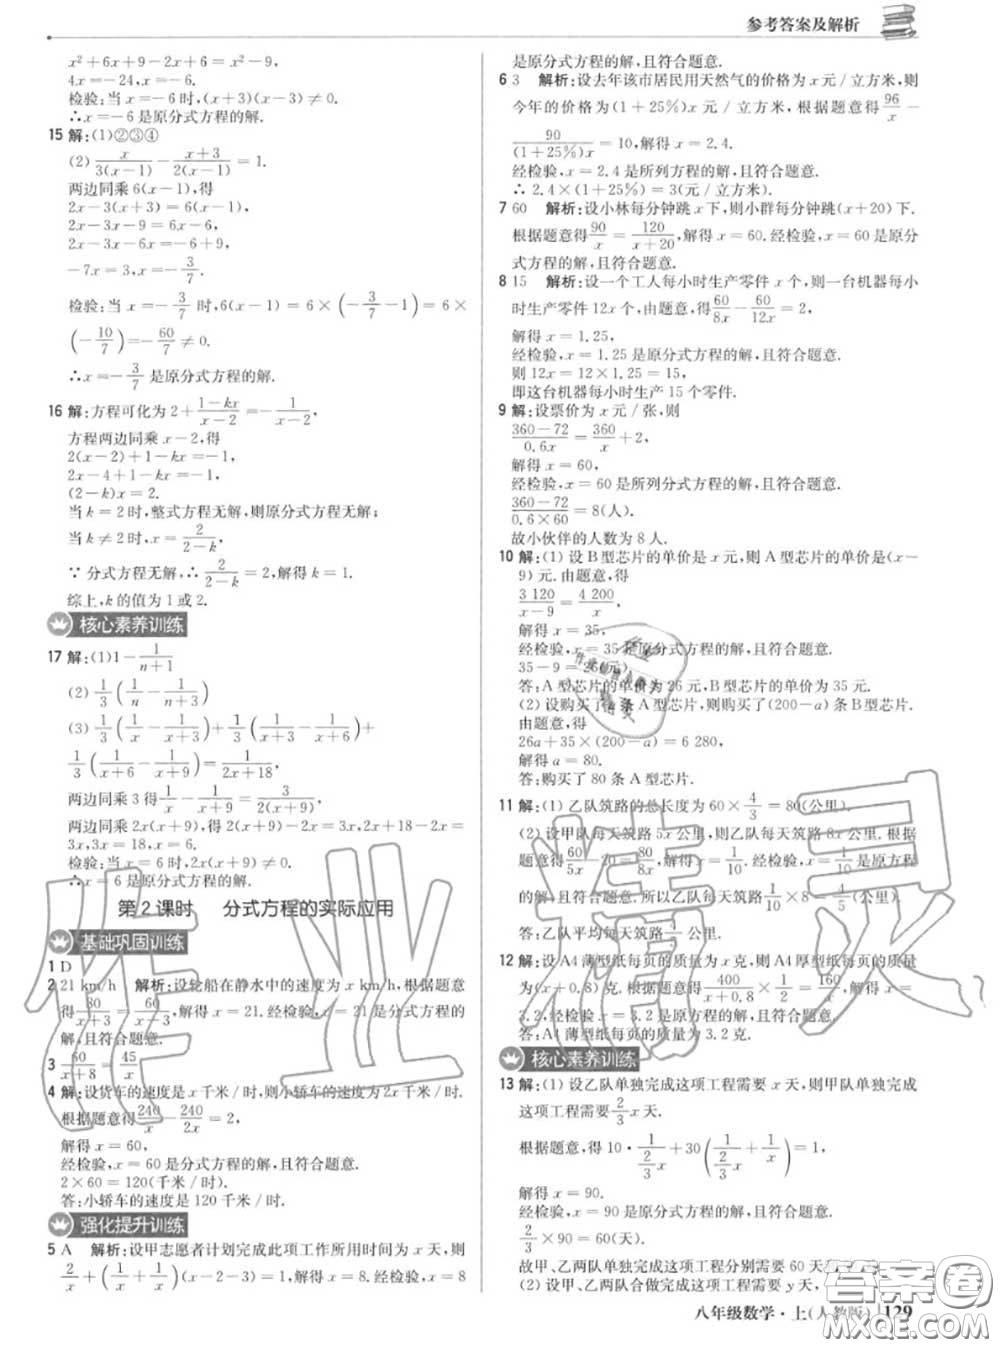 参考答案及解析
x²+6x+9-2x+6=x²-9,
4x=-24, x=-6.
检验:当 x=-6时,(x+3)(x-3)≠0.
∴x=-6是原分式方程的解.
15 解:(1)②③④
(2) x/3(x-1) - (x+3)/2(x-1) =1.
两边同乘 6(x-1),得
2x-3(x+3)=6(x-1),
2x-3x-9=6x-6,
2x-3x-6x=-6+9,
-7x=3,x=-3/7.
检验:当 x=-3/7时,6(x-1)=6×(-3/7-1)=6×
(-10/7)=-60/7≠0.
∴x=-3/7是原分式方程的解.
16 解:方程可化为 2+(1-kx)/(x-2)=-1/(x-2),
方程两边同乘 x-2,得
2(x-2)+1-kx=-1,
2x-4+1-kx=-1,
(2-k)x=2.
当 k=2时,整式方程无解,则原分式方程无解;
当 k≠2时,x=2/(2-k),
∵分式方程无解,∴2/(2-k)=2,解得 k=1.
综上,k 的值为 1 或 2.
核心素养训练
17 解:(1)1-1/(n+1)
(2) 1/3(1/n-1/(n+3))
(3) 1/3(1/x-1/(x+3))+1/3(1/(x+3)-1/(x+6))+
1/3(1/(x+6)-1/(x+9))=1/(2x+18),
两边同乘 3得1/x-1/(x+9)=3/(2x+18),
两边同乘 2x(x+9),得 2(x+9)-2x=3x,2x+18-2x=
3x,3x=18,x=6.
检验:当 x=6时,2x(x+9)≠0.
∴x=6是原分式方程的解.
第2课时 分式方程的实际应用
基础巩固训练
1 D
2 21 km/h 解析:设轮船在静水中的速度为 x km/h,根据题意
得80/(x+3)=60/(x-3),解得 x=21.经检验,x=21是分式方程的
解,且符合题意.
3 60/(x+8)=45/x
4 解:设货车的速度是 x 千米/时,则小轿车的速度是 2x 千米/时.
根据题意得240/x-240/2x=2,
解得 x=60,
经检验,x=60是分式方程的解,且符合题意.
2×60=120(千米/时).
答:小轿车的速度是 120 千米/时.
强化提升训练
5 A 解析:设甲志愿者计划完成此项工作所用时间为 x 天,则
2/x+(1/x+1/x)(x-2-3)=1,解得 x=8.经检验,x=8
是原分式方程的解,且符合题意.
6 3 解析:设去年该市居民用天然气的价格为 x 元/立方米,则
今年的价格为(1+25%)x 元/立方米,根据题意得96/x-
90/(1+25%)x=10,解得 x=2.4.
经检验,x=2.4是所列方程的解,且符合题意.
∴ 2.4×(1+25%)=3(元/立方米).
7 60 解析:设小林每分钟跳 x下,则小群每分钟跳(x+20)下.
根据题意得90/x=120/(x+20),解得 x=60.经检验,x=60是原分
式方程的解,且符合题意.
8 15 解析:设一个工人每小时生产零件 x 个,则一台机器每小
时生产零件 12x 个,由题意,得60/8x-60/12x=2,
解得 x=1.25,
经检验,x=1.25是原分式方程的解,且符合题意.
则 12x=12×1.25=15,
即这台机器每小时生产 15 个零件.
9 解:设票价为 x 元/张,则
(360-72)/0.6x=360/x+2,
解得 x=60,
经检验,x=60是所列分式方程的解,且符合题意.
(360-72)/(0.6×60)=8(人).
故小伙伴的人数为 8 人.
10 解:(1) 设 B型芯片的单价是 x 元,则 A 型芯片的单价是(x-
9)元.由题意,得
3 120/(x-9)=4 200/x,
解得 x=35,
经检验,x=35是原分式方程的解,且符合题意.
35-9=26(元).
答:A型芯片的单价为 26 元,B型芯片的单价为 35 元.
(2) 设购买了 a 条 A型芯片,则购买了(200-a)条 B型芯片.
由题意,得
26a+35×(200-a)=6 280,
解得 a=80.
答:购买了 80 条 A 型芯片.
11 解:(1) 乙队筑路的总长度为 60×4/3=80(公里).
(2) 设甲队每天筑路 5x 公里,则乙队每天筑路 8x 公里.根据
题意得60/5x-20=80/8x,解得 x=1/10.经检验,x=1/10是原方程
的解,且符合题意.∴乙队每天筑路 1/10×8=4/5(公里).
答:乙队平均每天筑路4/5公里.
12 解:设 A4薄型纸每页的质量为 x克,则 A4厚型纸每页的质量
为(x+0.8)克,根据题意得400/(x+0.8)×1/2=160/x,解得 x=
3.2,经检验,x=3.2是原方程的解,且符合题意.
答:A4薄型纸每页的质量为 3.2 克.
核心素养训练
13 解:(1) 设乙队单独完成这项工程需要 x 天,则甲队单独完成
这项工程需要 2/3 x 天.
根据题意,得 10·1/(2/3 x)+30(1/(2/3 x)+1/x)=1,
解得 x=90.
经检验,x=90是原方程的解,且符合题意.
2/3×90=60(天).
故甲、乙两队单独完成这项工程分别需要 60 天
(2) 设甲、乙两队合做完成这项工程需要 y 天,
八年级数学·上(人教版) 129
作业精灵
答案圈
MXQE.COM